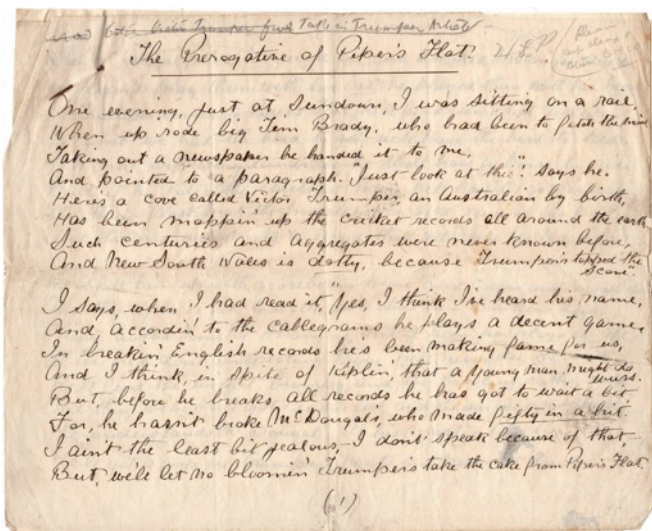 Victor Trumper from Talk in Trumper Article
The Prerogative of Piper's Flat. H.L.P.
One evening, just at sundown, I was sitting on a rail,
When up rode big Jim Brady, who had been to fetch the mail
Taking out a newspaper he handed it to me,
And pointed to a paragraph. "Just look at this," says he.
Here's a cove called Victor Trumper, an Australian by birth,
Has been moppin' up the cricket records all around the earth
Such centuries and aggregates were never known before,
And New South Wales is dotty, because "Trumper's topped the
Score".
I says, when I had read it, "Yes, I think I've heard his name,
And, accordin' to the cablegrams he plays a decent game,
In breakin' English records he's been making fame for us,
And I think, in spite of Kiplin', that a young man might do
wuss.
But, before he breaks all records he has got to wait a bit
For, he hasn't broke McDougal's, who made fifty in a hit.
I ain't the least bit jealous, I don't speak because of that,
But, we'll let no bloomin' Trumpers take the cake from Piper's Flat.
(1)